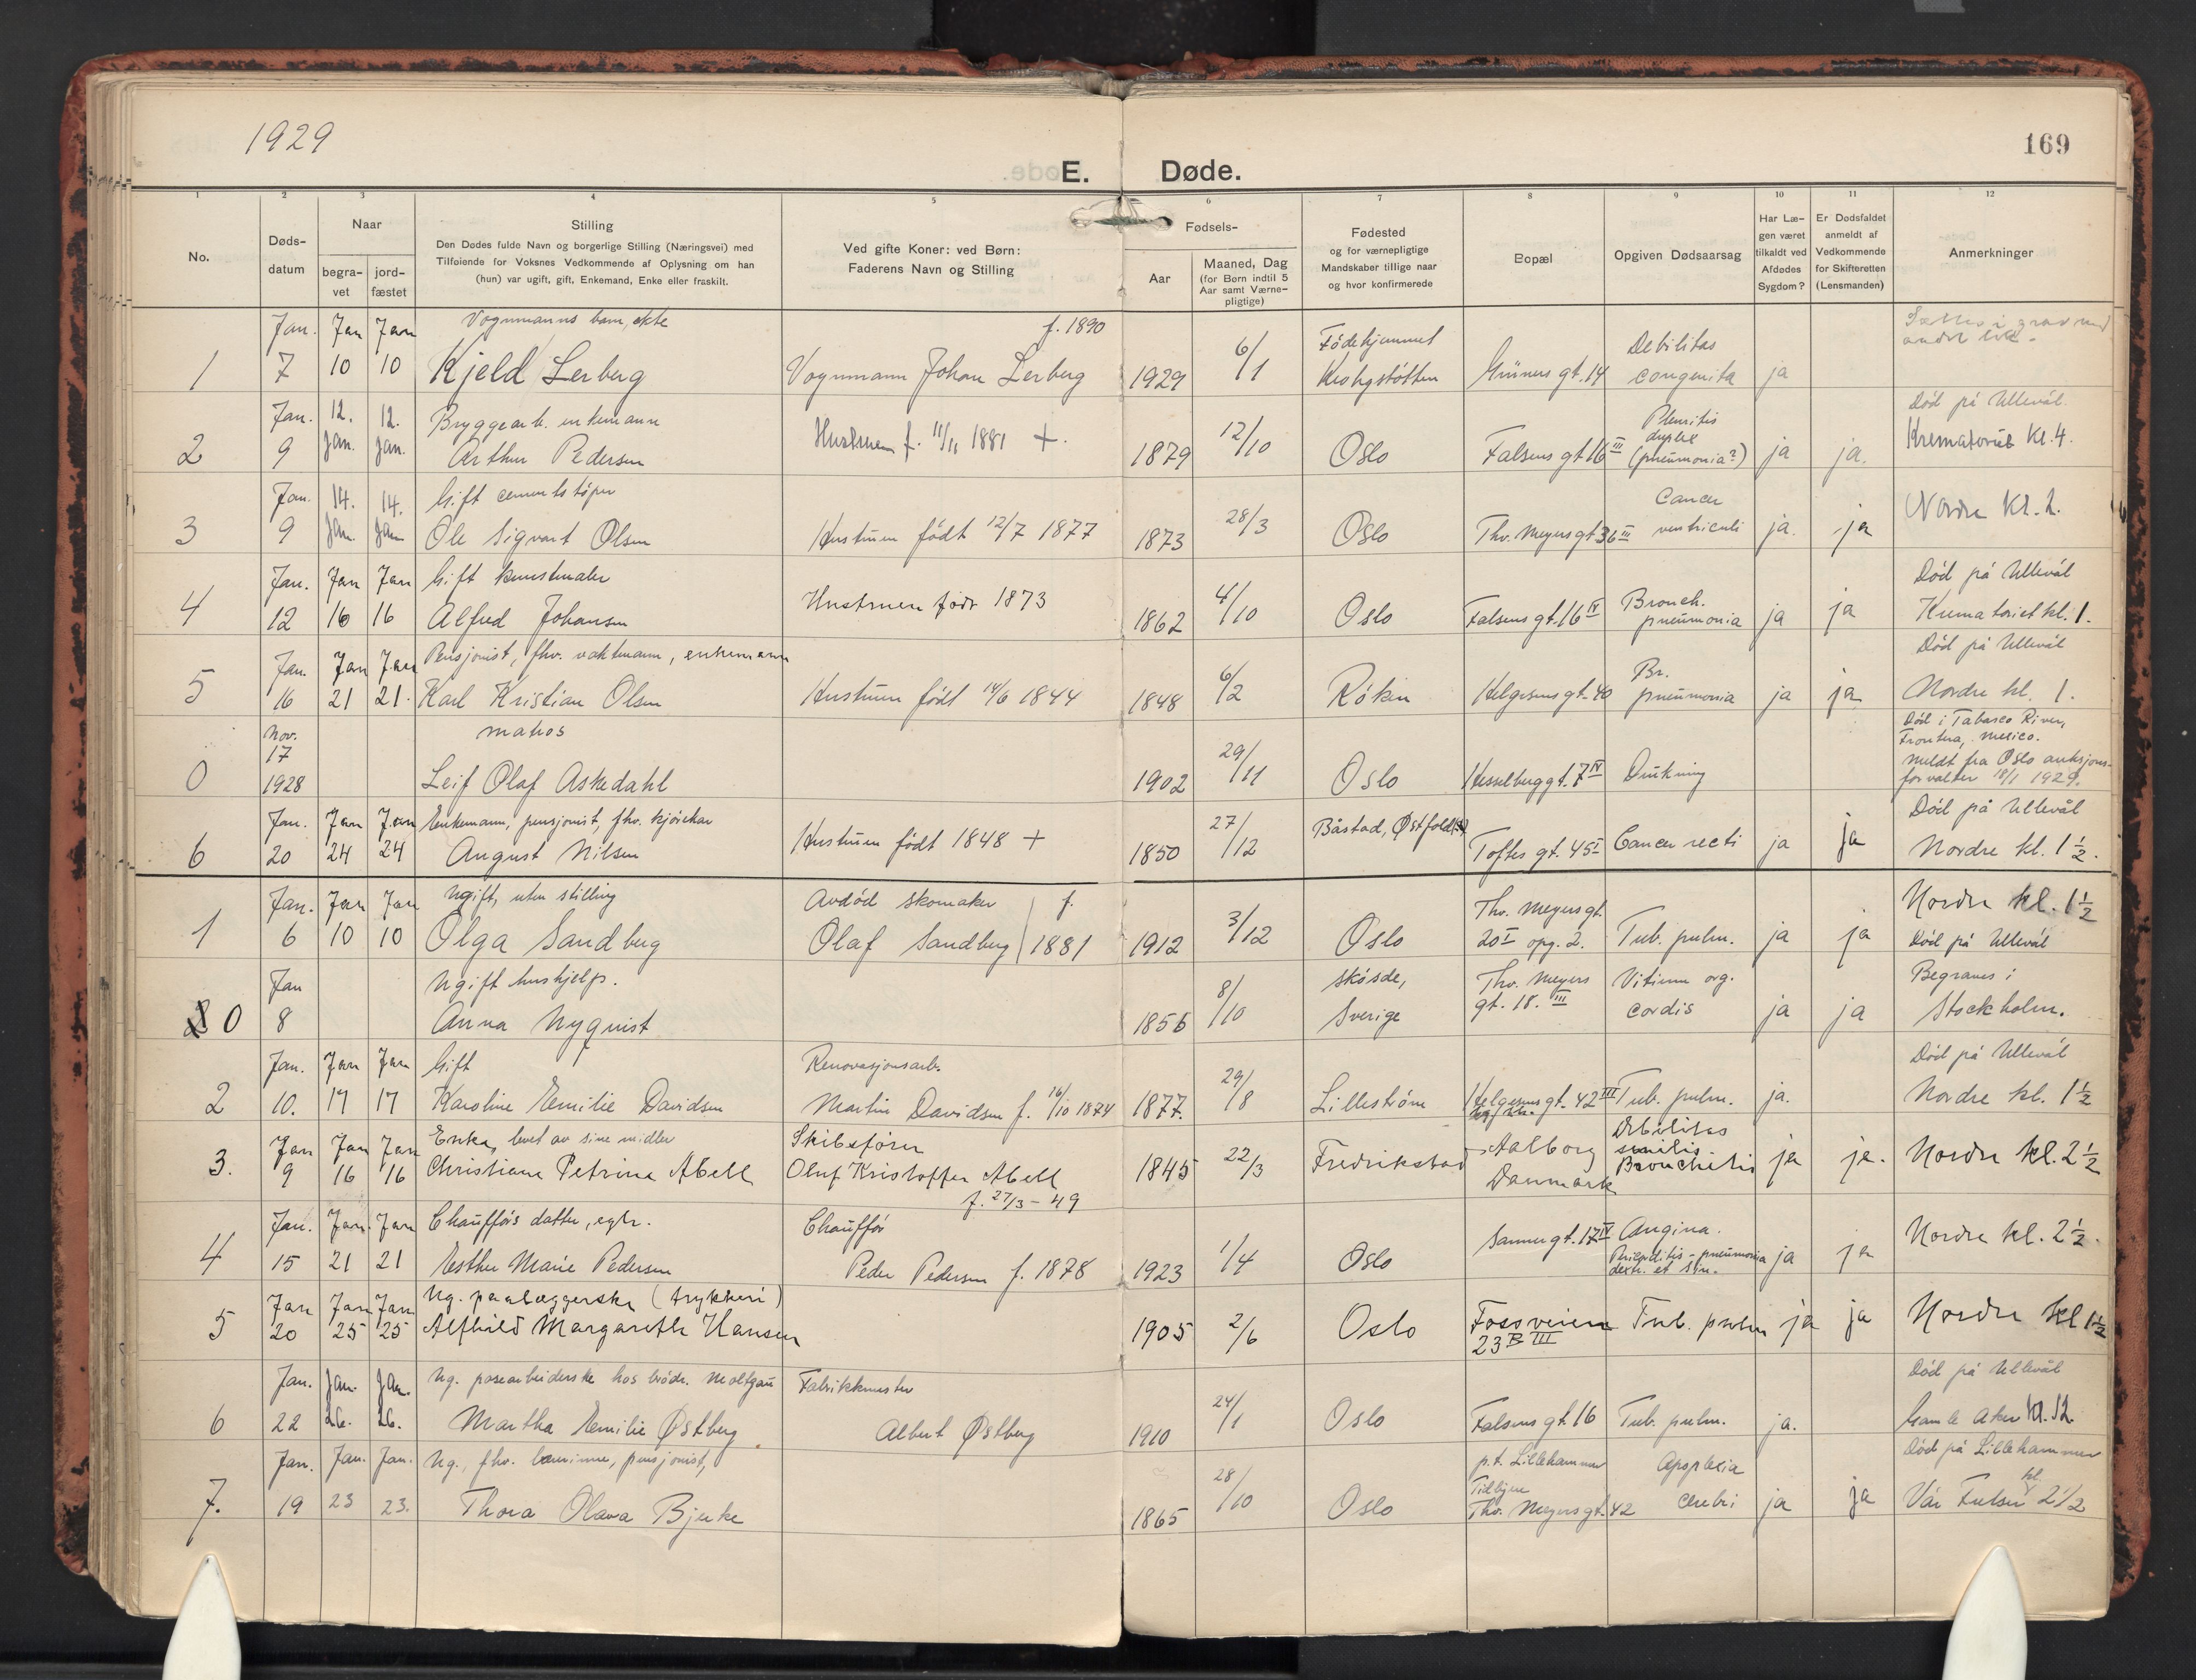 1929
169
E. Døde.
1 2 3 4 5 6 7 8 9 10 11 12
No.
Døds-
datum
Naar
begra-
vet
jord-
fæstet
Stilling
Den Dødes fulde Navn og borgerlige Stilling (Næringsvei) med
Tilføiende for Voksnes Vedkommende af Oplysning om han
(hun) var ugift, gift, Enkemand, Enke eller fraskilt.
Ved gifte Koner: ved Børn:
Faderens Navn og Stilling
Fødsels-
Aar
Maaned, Dag
(for Børn indtil 5
Aar samt Værne-
pligtige)
Fødested
og for værnepligtige
Mandskaber tillige naar
og hvor konfirmerede
Bopæl
Opgiven Dødsaarsag
Har Læ-
gen været
tilkaldt ved
Afdødes
Sygdom?
Er Dødsfaldet
anmeldt af
Vedkommende
for Skifteretten
(Lensmanden)
Anmerkninger
Jan. Jan Jan Vognmanns barn, ekte f. 1890 Fødehjemmet Debilitas i grav med
1 7 10 10 Kjeld Lerberg Vognmann Johan Lerberg 1929 6/1 Grüners gt. 14 congenita ja
Jan. 12. 12. Bryggearb. enkemann Pleuritis Død på Ullevål
2 9 Jan. Jan. Arthur Pedersen Hustruen f. 11/11 1881 +. 1879 12/10 Oslo Falsens gt 16 III duplex (pneumonia?) ja ja. Krematoriet kl. 4.
Jan. 14. 14. Gift cementstøper Cancer
3 9 Jan. Jan Ole Sigvart Olsen Hustruen født 12/7 1877 1873 28/3 Oslo Thv. Meyers gt 36 III ventriculi ja. ja Nordre kl. 2.
Jan. Jan Jan Gift kunstmaler Bronch. Død på Ullevål
4 12 16 16 Alfred Johansen Hustruen født 1873 1862 4/10 Oslo Falsens gt. 16 IV pneumonia ja ja Krematoriet kl. 1.
Jan. Jan Jan Pensjonist, fhv. vaktmann, enkemann Br. Død på Ullevål
5 16 21 21. Karl Kristian Olsen Hustruen født 14/6 1844 1848 6/2 Røken Helgesens gt. 40 pneumonia ja ja Nordre kl. 1.
Nov. matros Død i Tabasco River,
17 Frontera, Mexico.
0 1928 Leif Olaf Askedahl 1902 29/11 Oslo Hesselberg gt. 7 IV Drukning meldt fra Oslo auksjons-
forvalter 18/1 1929.
Jan. Jan Jan Enkemann, pensjonist, fhv. kjørekar Båstad, Østfold Død på Ullevål
6 20 24 24 August Nilsen Hustruen født 1848 + 1850 27/12 Toftes gt. 45 I Cancer recti ja ja Nordre kl. 1½.
Jan. Jan Jan Ugift, uten stilling Avdød skomaker f. Thv. Meyers gt. Nordre kl. 1½
1 6 10 10 Olga Sandberg Olaf Sandberg 1881 1912 3/12 Oslo 20 I opg. 2. Tub. pulm. ja ja Død på Ullevål
Jan Ugift hushjelp. Skøsde, Thv. Meyers Vitium org. Begraves i
0 8 Anna Nyqvist 1856 8/10 Sverige gt. 18. III cordis ja ja Stockholm.
Jan. Jan Jan Gift Renovasjonsarb. Død på Ullevål
2 10. 17 17 Karoline Emilie Davidsen Martin Davidsen f. 16/10 1874 1877. 29/8 Lillestrøm Helgesens gt. 42 III Tub. pulm. ja. Nordre kl. 1½
Jan Jan Jan Enke, levet av sine midler Skibsfører Debilitas
3. 9 16 16 Christiane Petrine Abell Oluf Kristoffer Abell 1845 22/3 Fredrikstad Aalborg senilis. Bronchitis ja ja. Nordre kl. 2½
f. 27/3 - 49 Danmark
Jan. Jan. Jan Chaufførs datter, egte. Chauffør Angina. Nordre kl. 2½.
4 15 21 21 Esther Marie Pedersen Peder Pedersen f. 1878 1923 1/4 Oslo Sannergt. 17 IV pneumonia ja ja
dextr. et sin.
Jan Jan Jan Ug. paalæggerske (trykkeri)
5 20 25 25 Alfhild Margarethe Hansen 1905 2/6 Oslo Fossveien Tub. pulm ja ja Nordre kl 1½
23 B III
Jan. Jan. Jan. Ug. posearbeiderske hos brødr. Moltzau Fabrikkmester Død på Ullevål
6 22 26. 26. Martha Emilie Østberg. Albert Østberg 1910 24/1 Oslo Falsens gt. 16 Tub. pulm. ja. Gamle Aker kl. 12.
Jan. Jan. Jan. Ug., fhv. lærerinne, pensjonist, p.t. Lillehammer Apoplexia Død på Lillehammer
7. 19 23 23. Thora Olava Bjerke 1865 28/10 Oslo Thv. Meyers gt. 42 cerebri ja ja Vår Frelser kl. 2½